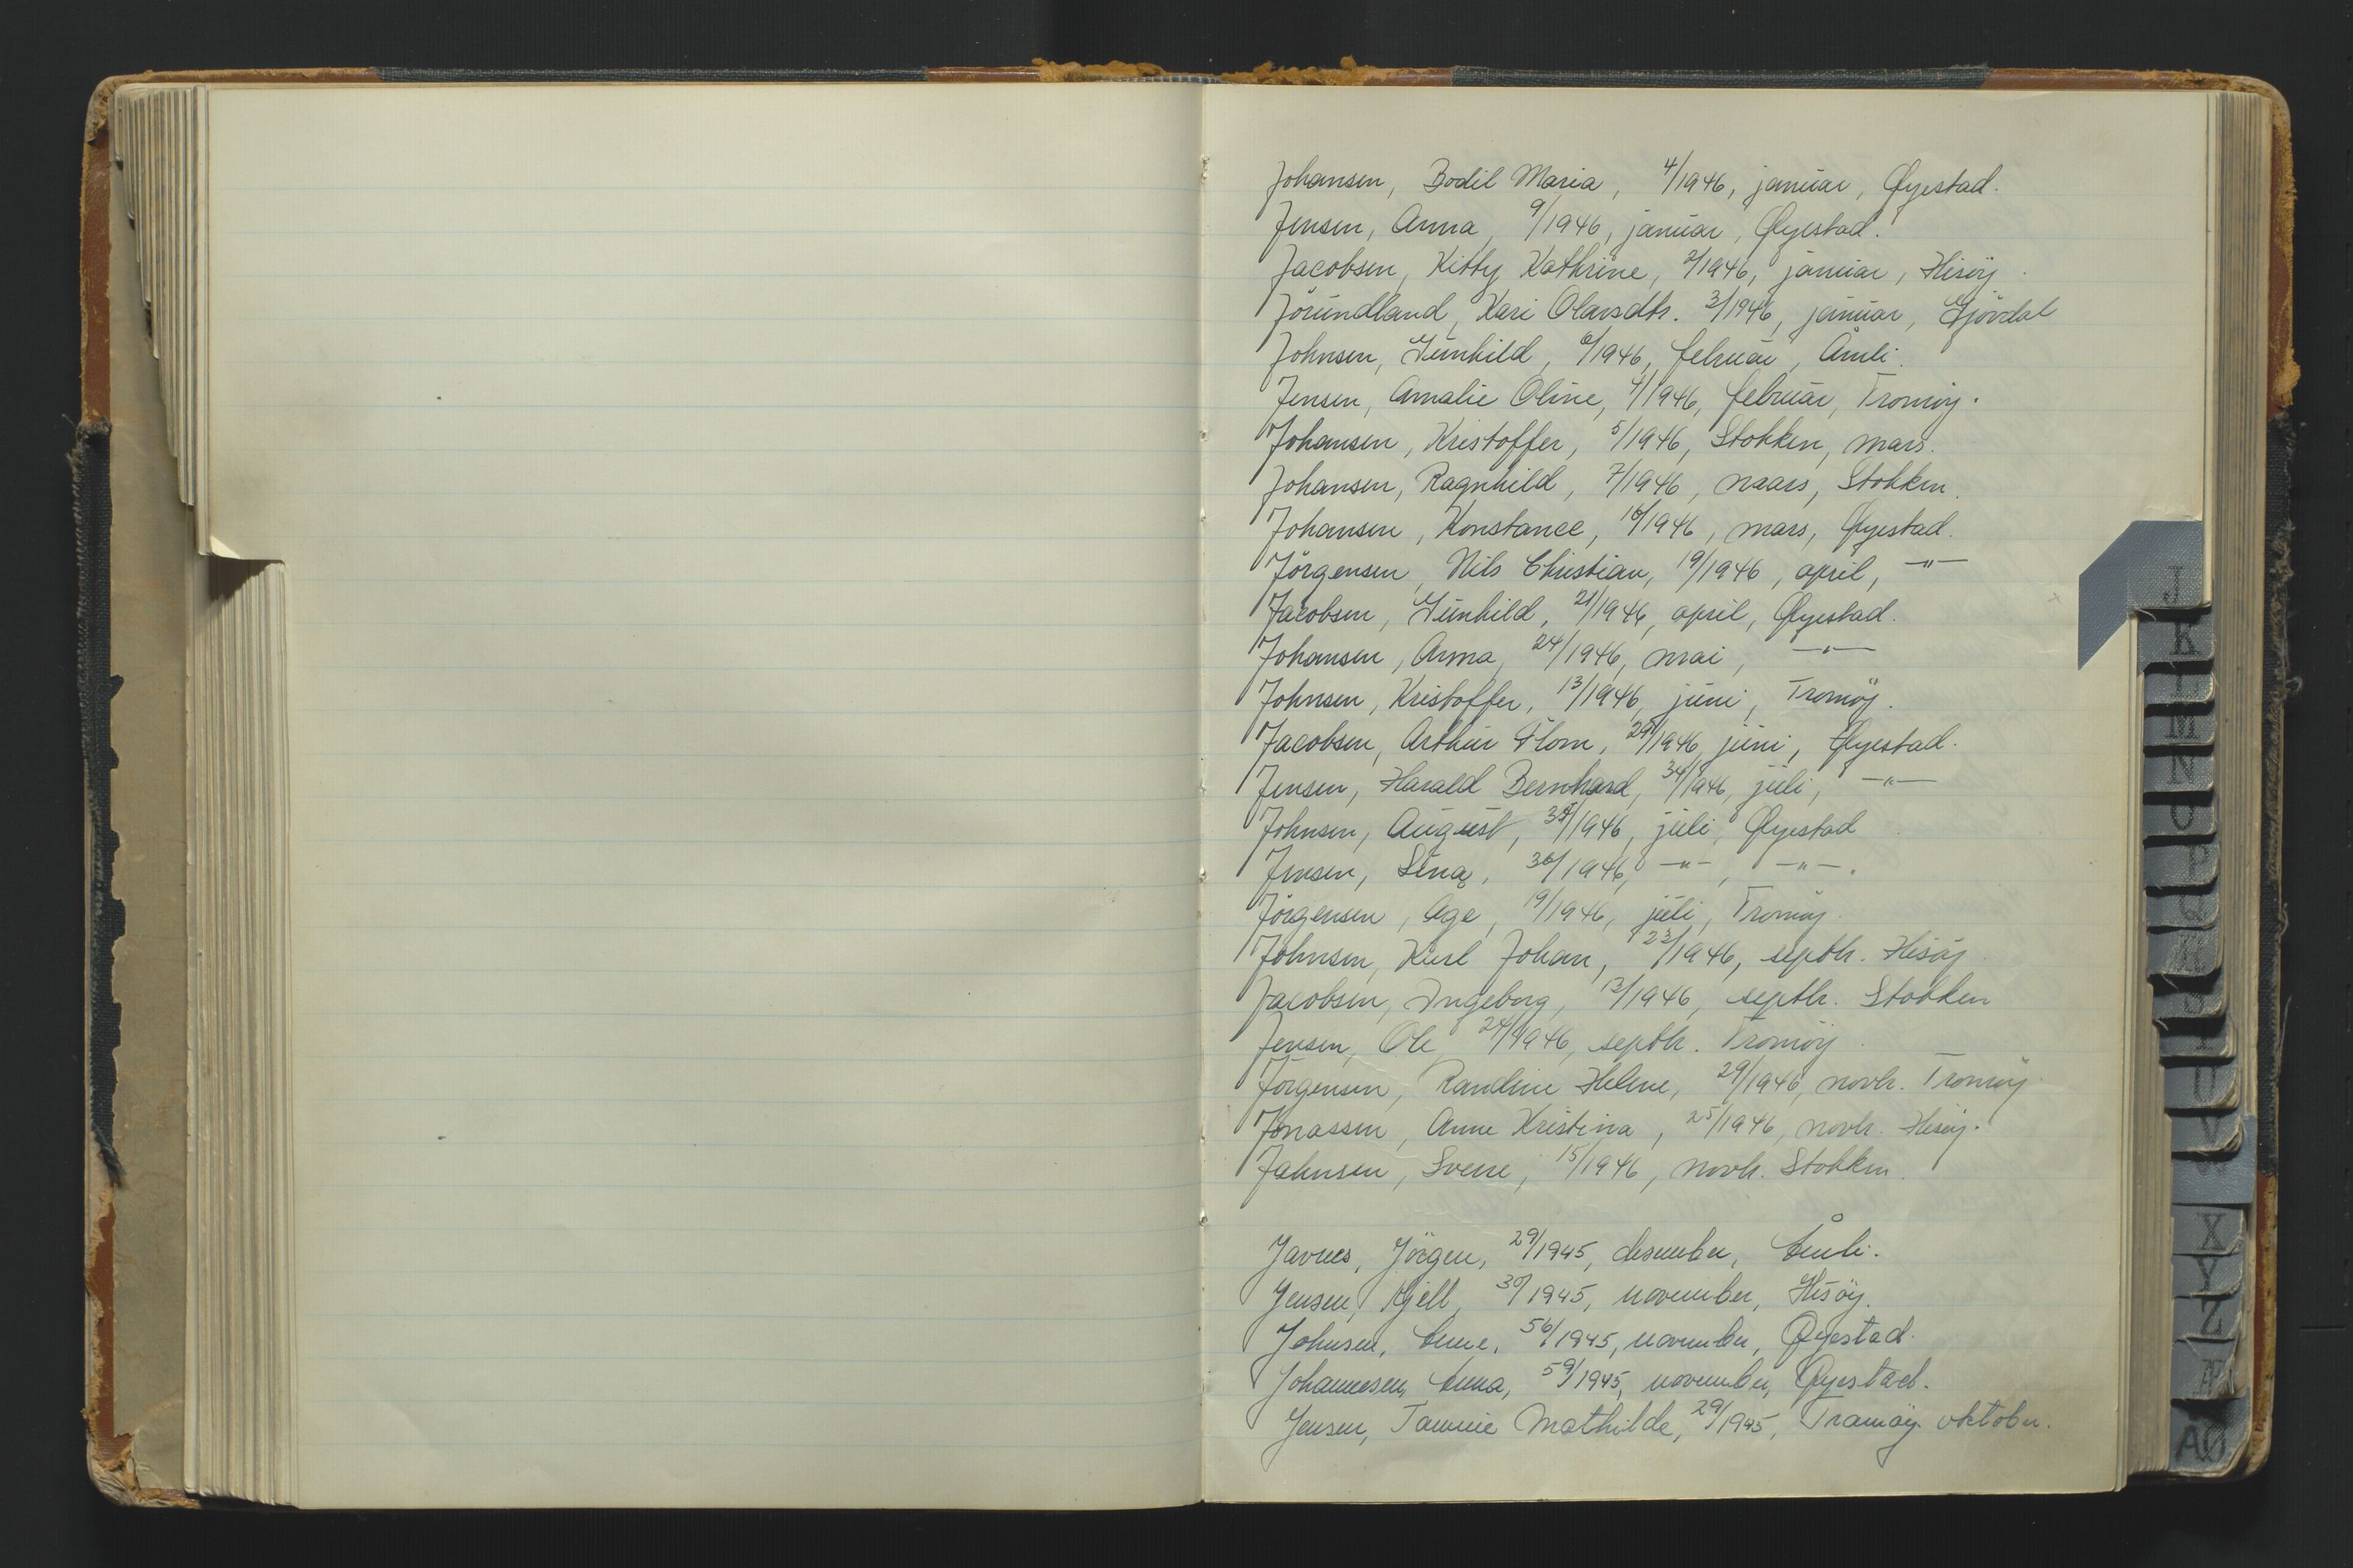 Johansen, Bodil Maria, 4/1946, januar, Øyestad.
Jensen, Anna, 9/1946, januar, Øyestad.
Jacobsen, Kitty Kathrine, 2/1946, januar, Hisöy.
Jörundland, Kari Olavsdtr. 3/1946, januar, Gjövdal
Johnsen, Gunhild, 6/1946, februar, Åmli.
Jensen, Amalie Oline, 4/1946, februar, Tromöy.
Johansen, Kristoffer, 5/1946, Stokken, mars.
Johansen, Ragnhild, 7/1946, mars, Stokken.
Johansen, Konstance, 16/1946, mars, Øyestad.
Jörgensen, Nils Christian, 19/1946, april, —"—
Jacobsen, Gunhild, 21/1946, april, Øyestad.
Johansen, Anna, 24/1946, mai, —"—
Johnsen, Kristoffer, 13/1946, juni, Tromöy.
Jacobsen, Arthur Flom, 29/1946, juni, Øyestad.
Jensen, Harald Bernhard, 34/1946, juli, —"—
Johnsen, August, 35/1946, juli, Øyestad
Jensen, Sina, 36/1946, —"—, —"—.
Jörgensen, Åge, 19/1946, juli, Tromöy.
Johnsen, Karl Johan, 23/1946, septbr. Hisöy.
Jacobsen, Ingeborg, 13/1946, septbr. Stokken
Jensen, Ole 24/1946, septbr. Tromöy.
Jörgensen, Randine Helene, 29/1946, novbr. Tromöy.
Jonassen, Anne Kristina, 25/1946, novbr. Hisöy.
Jahnsen, Sverre, 15/1946, novbr. Stokken.
Javnes, Jörgen, 29/1945, desember, Åmli.
Jensen, Kjell, 30/1945, november, Hisöy.
Johnsen, Anne, 56/1945, november, Øyestad.
Johannesen, Anna, 59/1945, november, Øyestad.
Jensen, Mathilde, 29/1945, Tromöy. oktober.
J
K
L
M
N
O
P
Q
R
S
T
U
V
X
Y
Z
Æ
AØ